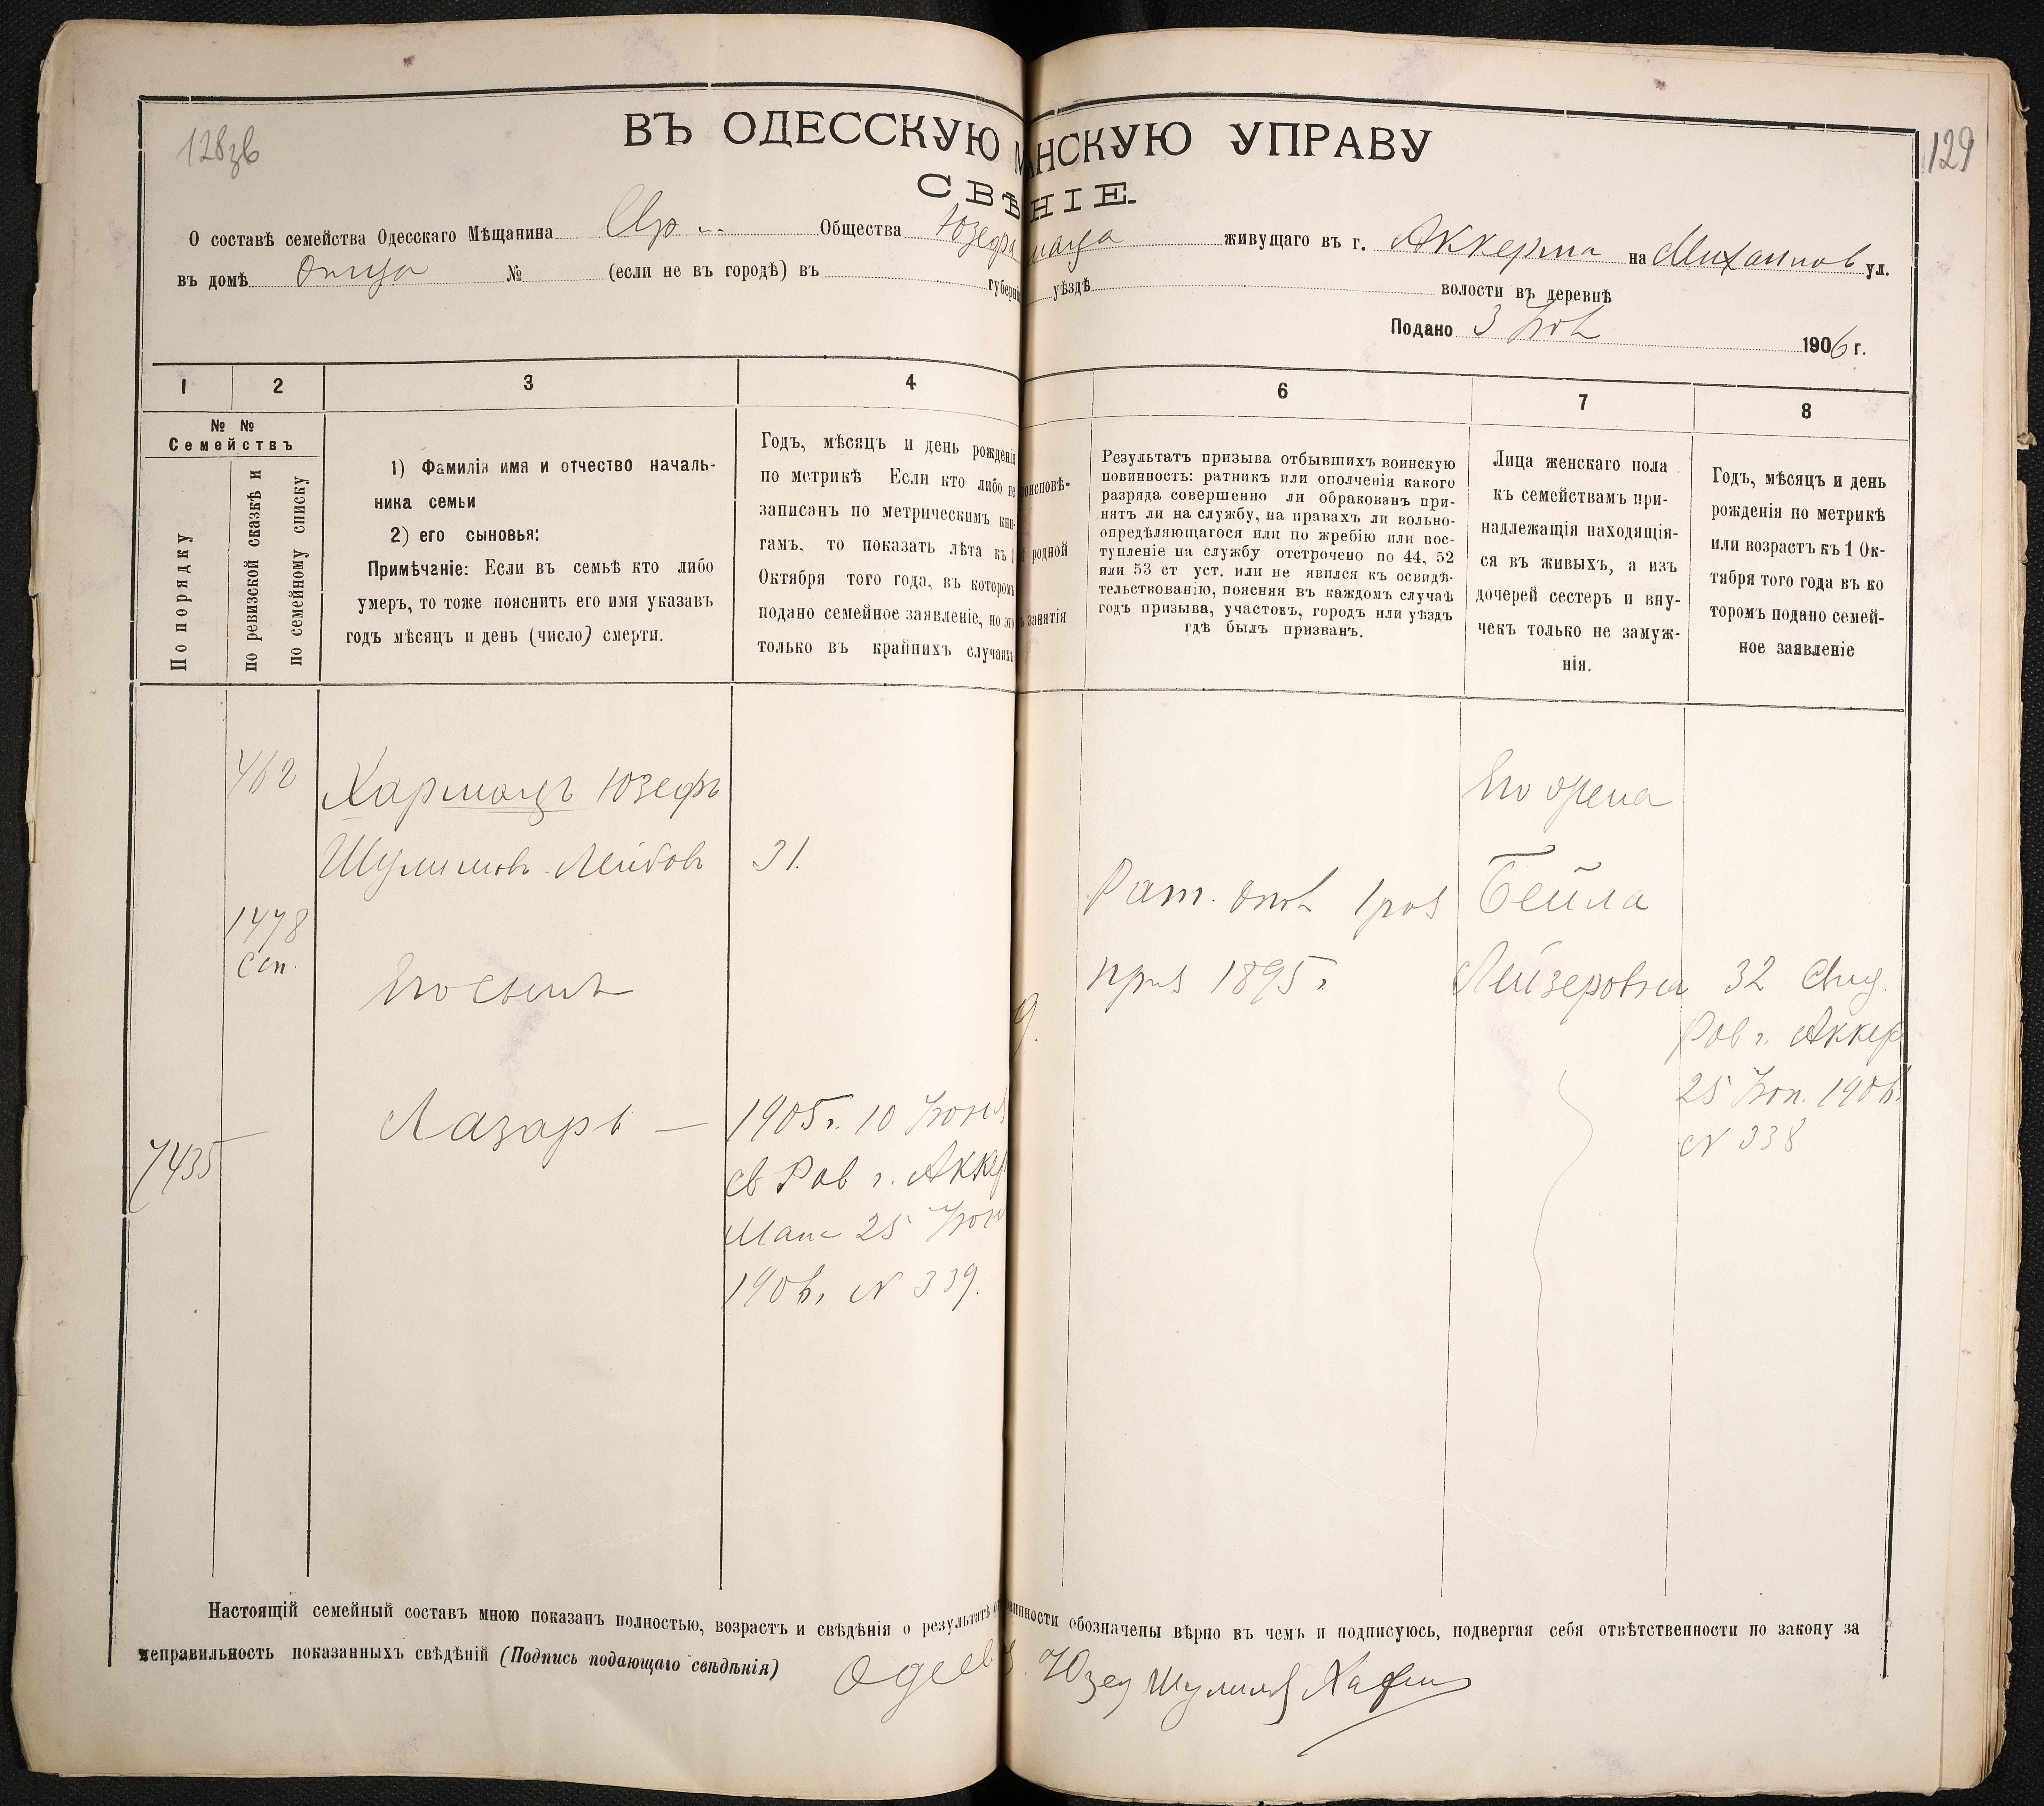 128зв
129
ВЪ ОДЕССКУЮ МѢЩАНСКУЮ УПРАВУ
СВѢДѢНІЕ.
О составѣ семейства Одесскаго Мѣщанина Общества Юзефа живущаго въ г. Аккерма на Михаилов ул.
въ домѣ отца № (если не въ городѣ) въ губерніи уѣздѣ волости въ деревнѣ
Подано 3 1906 г.
1 2 3 4 6 7 8
№ №
Семействъ
По порядку
по ревизской сказкѣ и
по семейному списку
1) Фамилія имя и отчество началь-
ника семьи
2) его сыновья:
Примѣчаніе: Если въ семьѣ кто либо
умеръ, то тоже пояснить его имя указавъ
годъ мѣсяцъ и день (число) смерти.
Годъ, мѣсяцъ и день рожденія
по метрикѣ Если кто либо не
записанъ по метрическимъ кни-
гамъ, то показать лѣта къ 1
Октября того года, въ которомъ
подано семейное заявленіе, но это
только въ крайнихъ случаяхъ
оисповѣ-
родной
занятія
Результатъ призыва отбывшихъ воинскую
повинность: ратникъ или ополченія какого
разряда совершенно ли обракованъ при-
нятъ ли на службу, на правахъ ли вольно-
опредѣляющагося или по жребію или пос-
тупленіе на службу отстрочено по 44, 52
или 53 ст уст. или не явился къ освидѣ-
тельствованію, поясняя въ каждомъ случаѣ
годъ призыва, участокъ, городъ или уѣздъ
гдѣ былъ призванъ.
Лица женскаго пола
къ семействамъ при-
надлежащія находящія-
ся въ живыхъ, а изъ
дочерей сестеръ и вну-
чекъ только не замуж-
нія.
Годъ, мѣсяцъ и день
рожденія по метрикѣ
или возрастъ къ 1 Ок-
тября того года въ ко
торомъ подано семей-
ное заявленіе
462
Хармацъ Юзефъ
Шулимовъ Лейбов
31.
1478
Сем.
Его сынъ
Лазарь —
7435
1905г. 10 Июня
св Рав г. Аккер
Ман 25 Июн
1906г. № 339.
Рат. опол 1 раз
приз 1895г
Его жена
Бейла
Лейзеровна
32 Свид.
Рав г. Аккер
25 Июн. 1906.
№ 338
Настоящій семейный составъ мною показанъ полностью, возрастъ и свѣдѣнія о результатѣ о винности обозначены вѣрно въ чемъ и подписуюсь, подвергая себя отвѣтственности по закону за
неправильность показанныхъ свѣдѣній (Подпись подающаго свѣдѣнія) Юзеф Шулимов